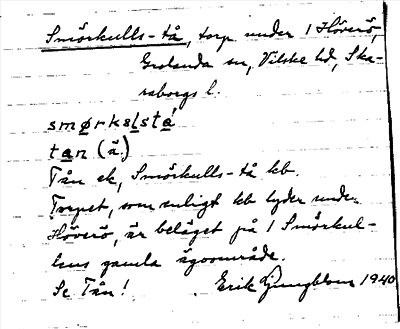 Smörkulls-tå, torp under 1 Höverö,
Grolanda sn, Vilske hd, Ska-
raborgs l.
smørkslstá
tan (ä.)
Tån ek, Smörkulls-tå kb.
Torpet, som enligt kb lyder under
Höverö, är beläget på 1 Smörkul-
lens gamla ägoområde.
Se Tån! Erik Ljungblom 1940